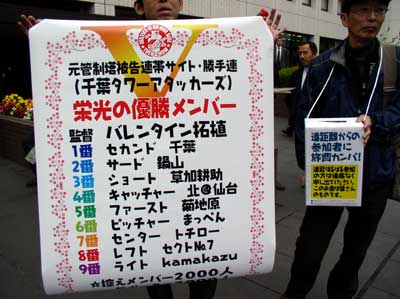 元管制塔被告連帯サイト・勝手連
(千葉タワーアタッカーズ)
栄光の優勝メンバー
監督 バレンタイン拓埴
1番 セカンド 千葉
2番 サード 鍋山
3番 ショート 草加耕助
4番 キャッチャー 北@仙台
5番 ファースト 菊地原
6番 ピッチャー まっぺん
7番 センター トチロー
8番 レフト セクトNo.7
9番 ライト kamakazu
☆控えメンバー2000人
遠距離からの
参加者に
旅費カンパ!
の方は遠慮なく
申し出てください。
このお金は皆さん
のものです。